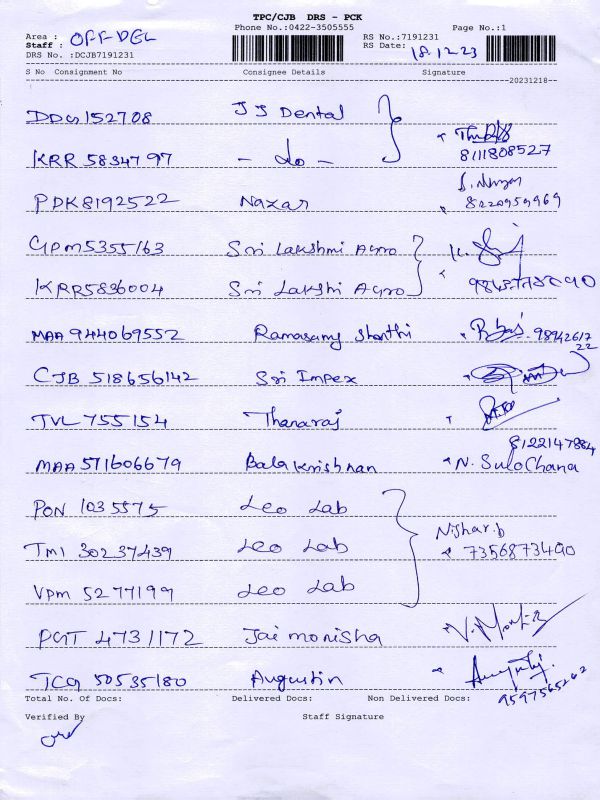 TPC/CJB DRS - PCK
Phone No.:0422-3505555 Page No.:1
Area : OFF-DEL RS No.:7191231
Staff : RS Date: 18.12.23
DRS No. :DCJB7191231
S No Consignment No Consignee Details Signature
20231218
DDG152708 JJ Dental
KRR 5834797 - do - 8111808527
PDK8192522 Nazar 8220959969
GPM5355163 Sri Lakshmi Agro
KRR5836004 Sri Lakshi Agro
MAA 944069552 Ramasamy shanthi 9894261722
CJB 518656142 Sri Impex
TVL 755154 Thanaraj
8122147884
MAA 571606679 Balakrishnan N. SuloChana
PON 1035575 Leo Lab
Nishar.b
TMI 30237439 Leo Lab 7356873490
VPM 5277199 Leo Lab
PGT 4731172 Jaimonisha
TCG 50535180 Augustin
9597565262
Total No. Of Docs: Delivered Docs: Non Delivered Docs:
Verified By Staff Signature